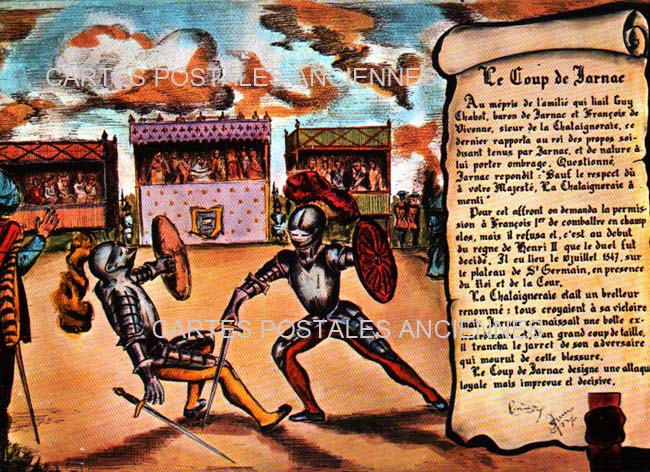 CARTES POSTALES ANCIENNES
Le Coup de Jarnac
Au mépris de l'amitié qui liait Guy
Chabot, baron de Jarnac et François de
Vivonne, sieur de la Chataigneraie, ce
dernier rapporta au roi des propos soi-
disant tenus par Jarnac, et de nature à
lui porter ombrage. Questionné,
Jarnac repondit : "Sauf le respect dû
à votre Majesté, La Chataigneraie à
menti"
Pour cet affront on demanda la permis-
sion à François 1er de combattre en champ
clos, mais il refusa et, c'est au début
du règne de Henri II que le duel fut
décidé. Il eu lieu le 10 juillet 1547, sur
le plateau de St Germain, en présence
du Roi et de la Cour.
La Chataigneraie était un bretteur
renommé : tous croyaient à sa victoire
connaissait une botte
d'un grand coup de taille,
il trancha le jarret de son adversaire
qui mourut de cette blessure.
Le Coup de Jarnac designe une attaque
loyale mais imprevue et décisive.
CARTES POSTALES ANCIENNES